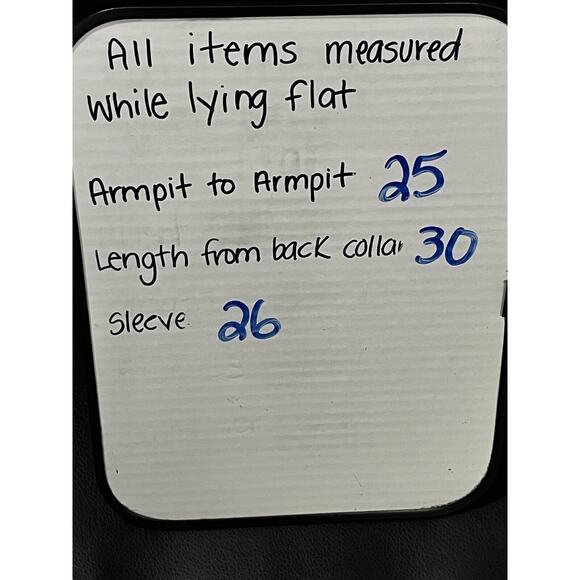 All items measured
while lying flat
Armpit to Armpit 25
Length from back collar 30
Sleeve 26